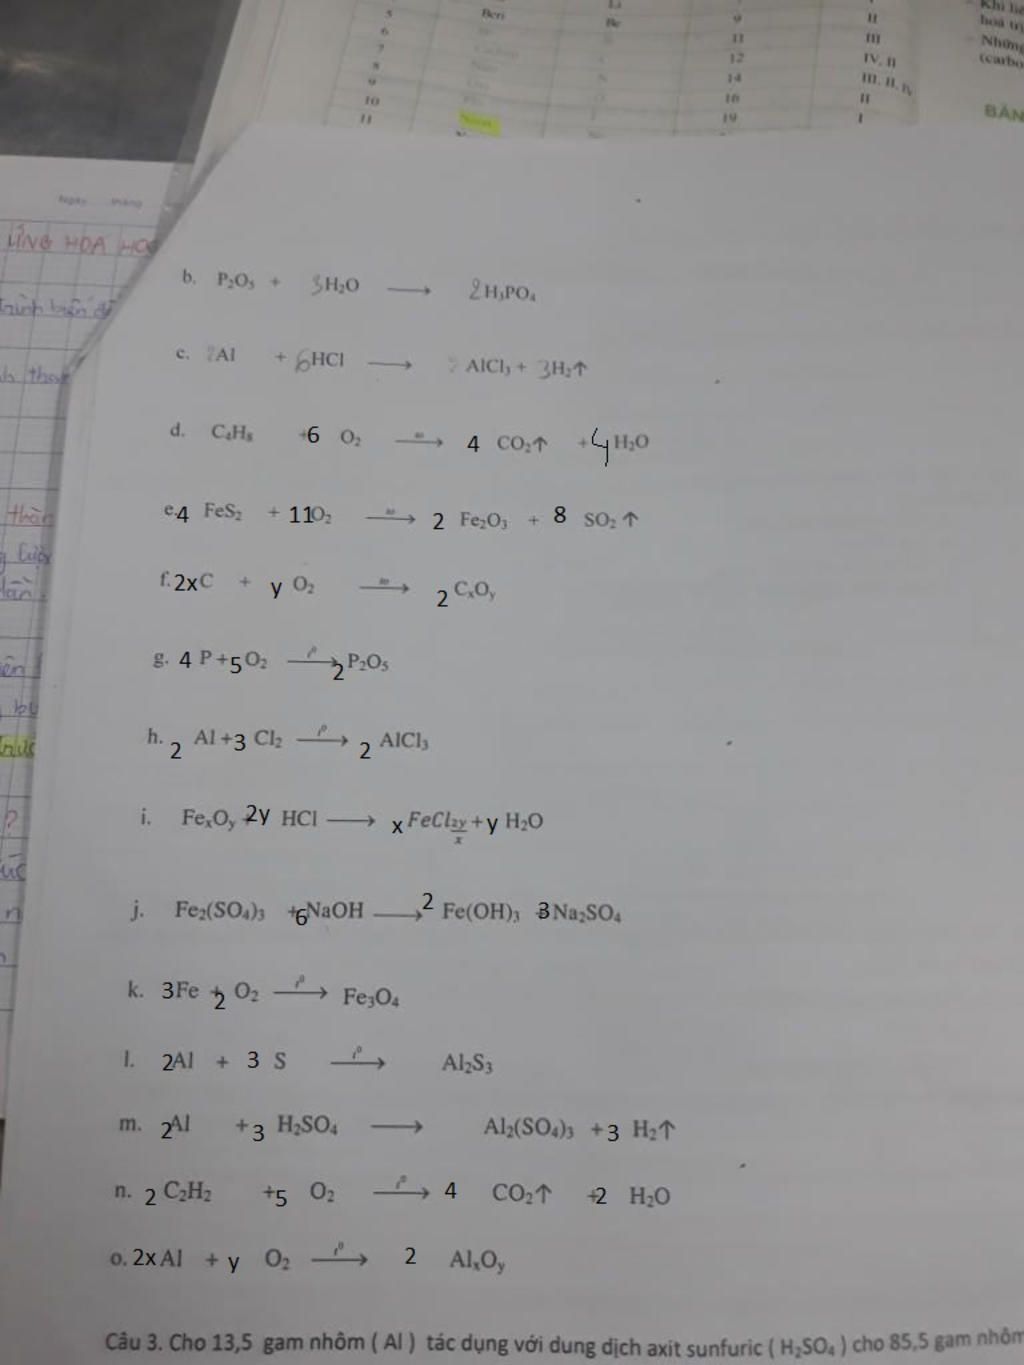 5 Beri Be 9 II
6 11 III
7 12 IV, II
8 14 III, II, IV
9 16 II
10 19 I
11
BẢN
Ngày tháng
ỨNG HÓA HỌC
b. P₂O₅ + 3H₂O ⟶ 2H₃PO₄
c. 2Al + 6HCl ⟶ 2 AlCl₃ + 3H₂↑
d. C₄H₈ +6 O₂ ⟶ 4 CO₂↑ +4H₂O
e.4 FeS₂ + 11O₂ ⟶ 2 Fe₂O₃ + 8 SO₂↑
f.2xC + y O₂ ⟶ 2 CₓOᵧ
g. 4 P+5O₂ ⟶ 2P₂O₅
h. 2 Al+3 Cl₂ ⟶ 2 AlCl₃
i. FeₓOᵧ +2y HCl ⟶ x FeCl2y/x + y H₂O
j. Fe₂(SO₄)₃ +6NaOH ⟶ 2 Fe(OH)₃ +3Na₂SO₄
k. 3Fe + 2 O₂ ⟶ Fe₃O₄
l. 2Al + 3 S ⟶ Al₂S₃
m. 2Al +3 H₂SO₄ ⟶ Al₂(SO₄)₃ +3 H₂↑
n. 2 C₂H₂ +5 O₂ ⟶ 4 CO₂↑ +2 H₂O
o. 2x Al + y O₂ ⟶ 2 AlₓOᵧ
Câu 3. Cho 13,5 gam nhôm ( Al ) tác dụng với dung dịch axit sunfuric ( H₂SO₄ ) cho 85,5 gam nhôm